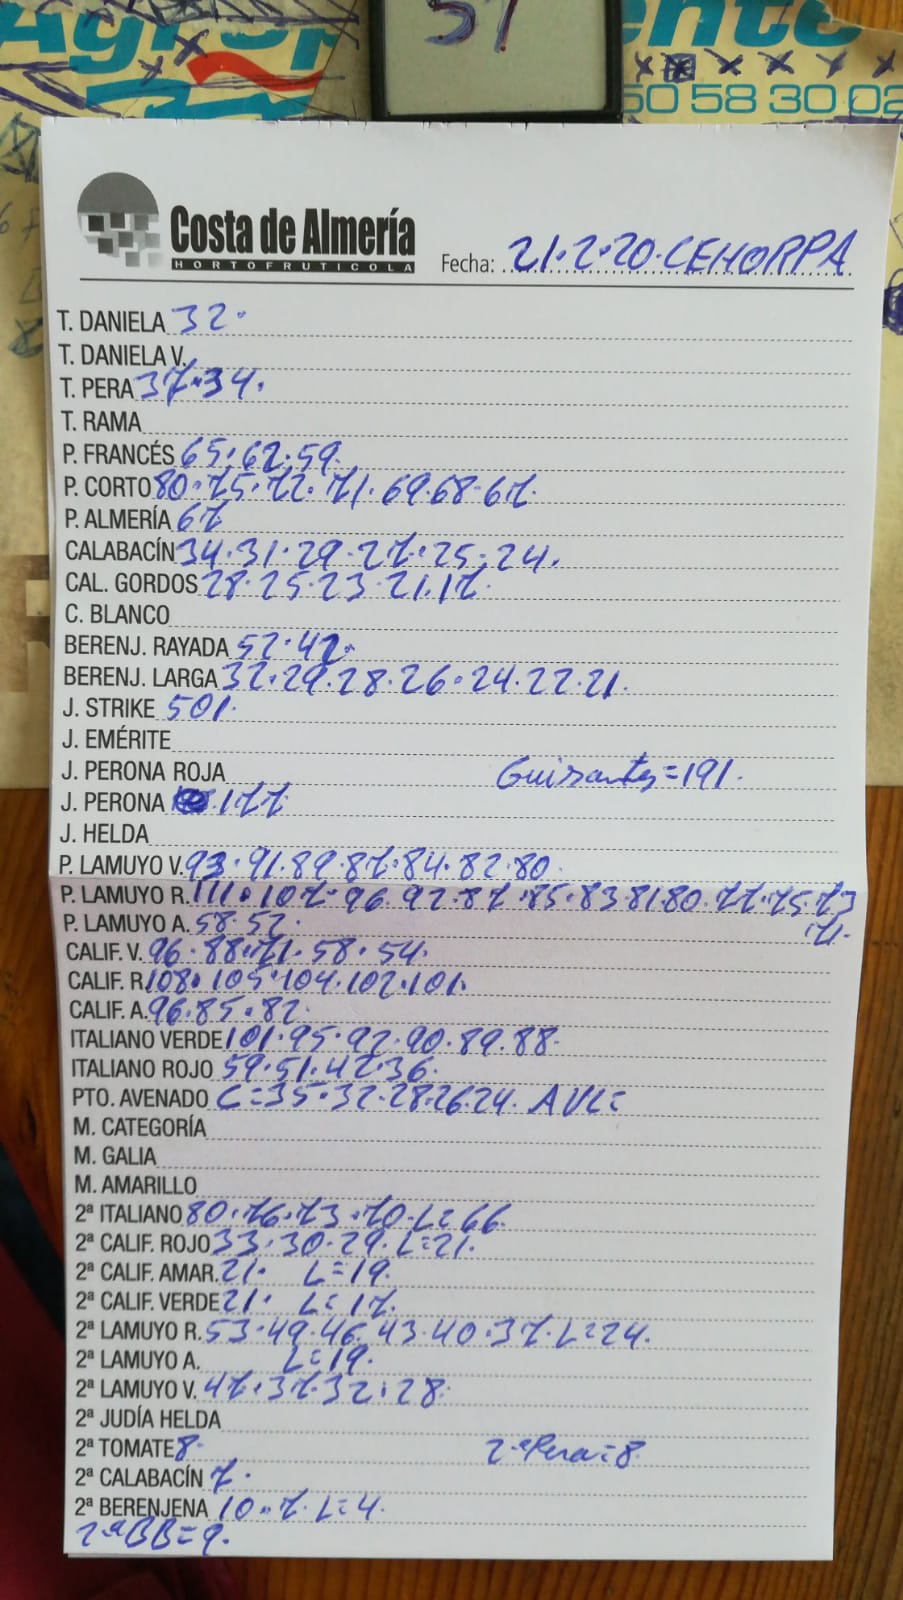 57
50 58 30 02
Costa de Almería
HORTOFRUTICOLA
Fecha: 21.2.20.CEHORPA
T. DANIELA 32.
T. DANIELA V.
T. PERA 37.34.
T. RAMA
P. FRANCÉS 65.62.59
P. CORTO 80.75.72.71.69.68.67.
P. ALMERÍA 67
CALABACÍN 34.31.29.27.25.24.
CAL. GORDOS 28.25.23.21.17.
C. BLANCO
BERENJ. RAYADA 52.42.
BERENJ. LARGA 32.29.28.26.24.22.21.
J. STRIKE 501.
J. EMÉRITE
J. PERONA ROJA Guisantes=191.
J. PERONA .177
J. HELDA
P. LAMUYO V. 93.91.89.87.84.82.80.
P. LAMUYO R. 111.107.96.92.87.85.83.81.80.77.75.73
71.
P. LAMUYO A. 58.52.
CALIF. V. 96.88.71.58.54.
CALIF. R. 108.105.104.102.101.
CALIF. A. 96.85.82.
ITALIANO VERDE 101.95.92.90.89.88.
ITALIANO ROJO 59.51.42.36.
PTO. AVENADO C=35.32.28.26.24. AVL=
M. CATEGORÍA
M. GALIA
M. AMARILLO
2ª ITALIANO 80.76.73.70.L=66.
2ª CALIF. ROJO 33.30.29.L=21.
2ª CALIF. AMAR. 21. L=19.
2ª CALIF. VERDE 21. L=17.
2ª LAMUYO R. 53.49.46.43.40.37.L=24.
2ª LAMUYO A. L=19.
2ª LAMUYO V. 47.37.32.28.
2ª JUDÍA HELDA
2ª TOMATE 8. 2ªPera=8.
2ª CALABACÍN 7.
2ª BERENJENA 10.7.L=4.
2ªBB=9.